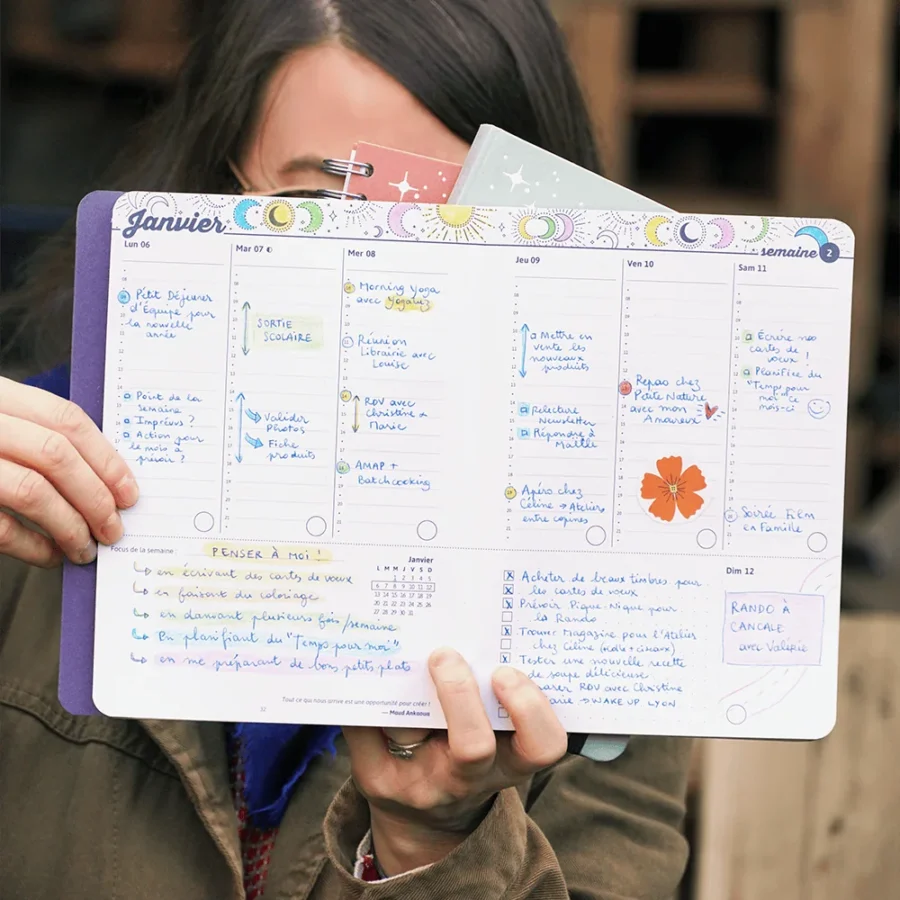 Janvier
semaine 2
Lun 06
Petit Déjeuner
d'Équipe pour
la nouvelle
année
Point de la
semaine
Imprévus ?
Action pour
le mois à
prévoir ?
Mar 07
SORTIE
SCOLAIRE
Valider
Photos
Fiche
produits
Mer 08
Morning Yoga
avec Yogaluz
Réunion
Librairie avec
Louise
RDV avec
Christine &
Marie
AMAP +
Batchcooking
Jeu 09
Mettre en
vente les
nouveaux
produits
Relecture
Newsletter
Répondre à
Maëlle
Apéro chez
Céline → Atelier
entre copines
Ven 10
Repas chez
Petite Nature
avec mon
Amoureux
Sam 11
Écrire nos
cartes de
voeux !
Planifier du
"Temps pour
moi" ce
mois-ci
Soirée Film
en Famille
Focus de la semaine :
PENSER À MOI !
en écrivant des cartes de voeux
en faisant du coloriage
en dansant plusieurs fois/semaine
En planifiant du "Temps pour moi"
en me préparant de bons petits plats
Janvier
L M M J V S D
1 2 3 4 5
6 7 8 9 10 11 12
13 14 15 16 17 18 19
20 21 22 23 24 25 26
27 28 29 30 31
Tout ce qui nous arrive est une opportunité pour créer !
— Maud Ankaoua
32
Acheter de beaux timbres pour
les cartes de voeux
Prévoir Pique-Nique pour
la Rando
Trouver Magazine pour l'Atelier
chez Céline
Tester une nouvelle recette
de soupe délicieuse
RDV avec Christine
→ WAKE UP LYON
Dim 12
RANDO À
CANCALE
avec Valérie